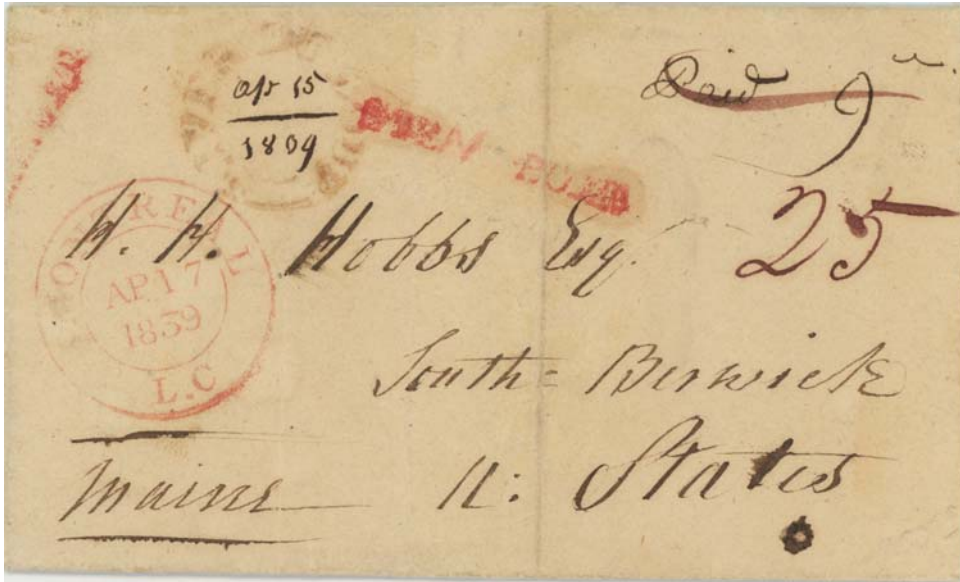 Ap 15
1839
Paid 9
25
MONTREAL
AP 17
1839
L.C
H. H. Hobbs Esq.
South = Berwick
Maine U: States